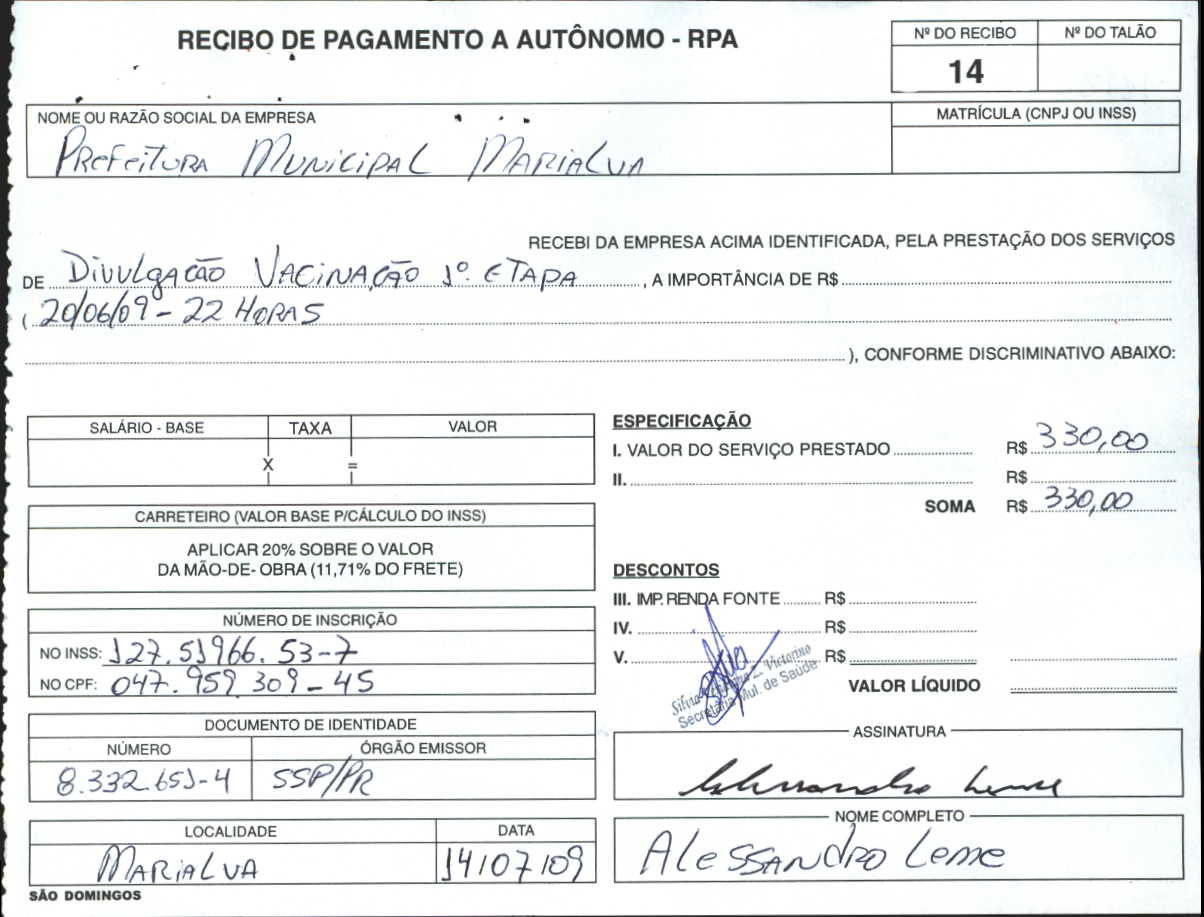 RECIBO DE PAGAMENTO A AUTÔNOMO - RPA
Nº DO RECIBO
Nº DO TALÃO
14
NOME OU RAZÃO SOCIAL DA EMPRESA
MATRÍCULA (CNPJ OU INSS)
Prefeitura Municipal Marialva
RECEBI DA EMPRESA ACIMA IDENTIFICADA, PELA PRESTAÇÃO DOS SERVIÇOS
DE Divulgacão Vacinação 1º. etapa, A IMPORTÂNCIA DE R$
( 20/06/09 - 22 Horas
), CONFORME DISCRIMINATIVO ABAIXO:
SALÁRIO - BASE TAXA VALOR
X =
CARRETEIRO (VALOR BASE P/CÁLCULO DO INSS)
APLICAR 20% SOBRE O VALOR
DA MÃO-DE- OBRA (11,71% DO FRETE)
NÚMERO DE INSCRIÇÃO
NO INSS: 127.51966.53-7
NO CPF: 047.959.309-45
DOCUMENTO DE IDENTIDADE
NÚMERO ÓRGÃO EMISSOR
8.332.651-4 SSP/PR
LOCALIDADE DATA
Marialva 14/07/09
SÃO DOMINGOS
ESPECIFICAÇÃO
I. VALOR DO SERVIÇO PRESTADO R$ 330,00
II. R$
SOMA R$ 330,00
DESCONTOS
III. IMP. RENDA FONTE R$
IV. R$
V. R$
Victorino
Secretária Mul. de Saúde
VALOR LÍQUIDO
ASSINATURA
Alessandro Leme
NOME COMPLETO
Alessandro Leme